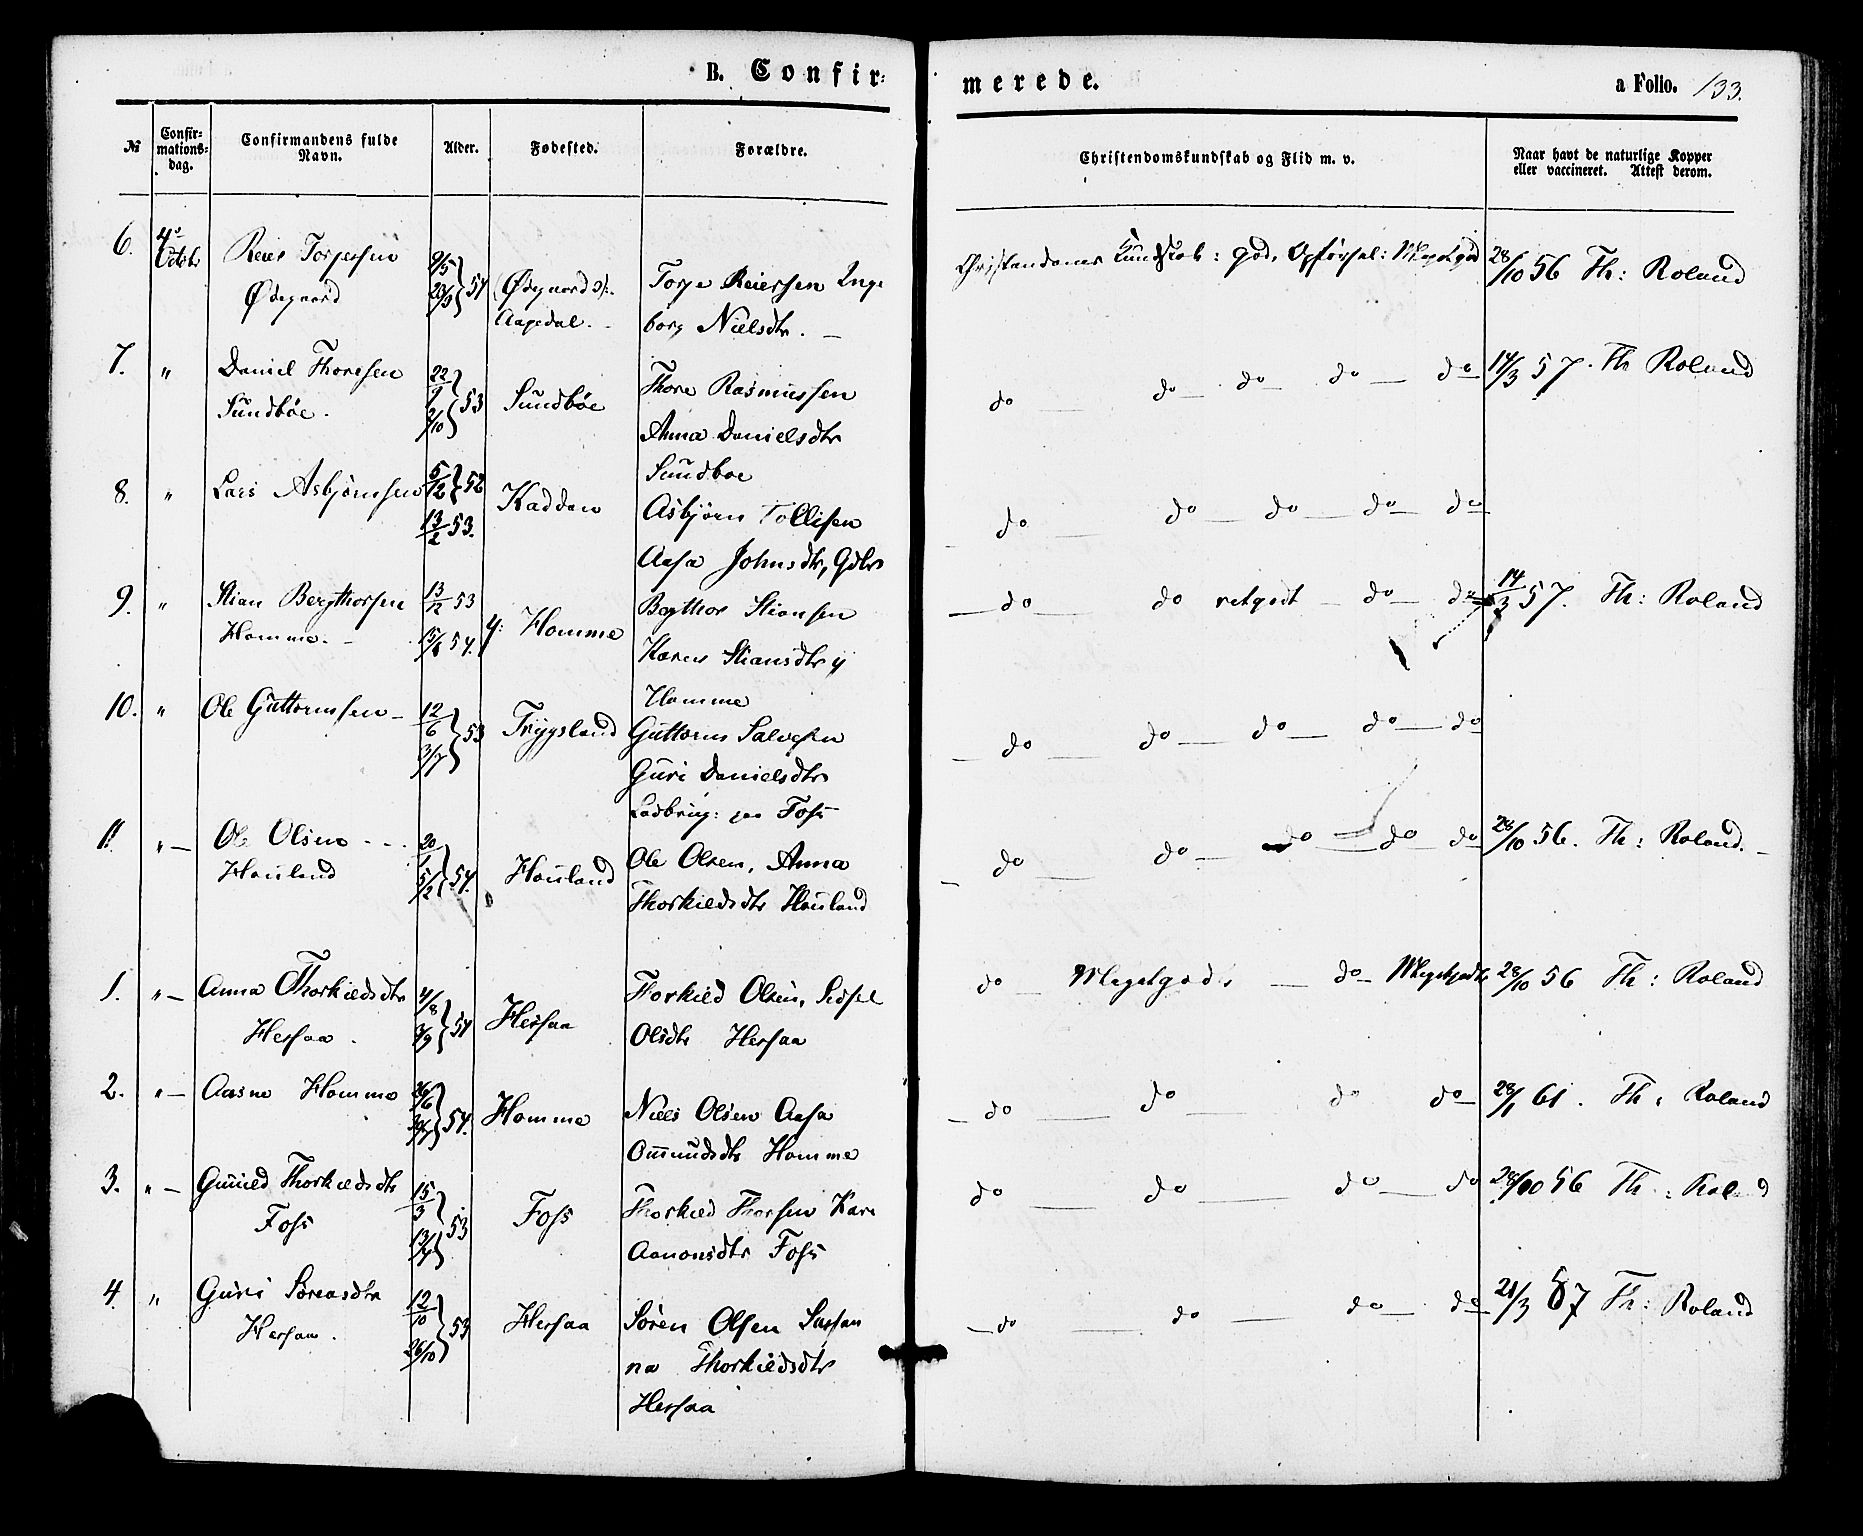 B. Confir-
merede.
a Folio. 133.
№
Confir-
mations-
dag.
Confirmandens fulde
Navn.
Alder.
Fødested.
Forældre.
Christendomskundskab og Flid m. v.
Naar havt de naturlige Kopper
eller vaccineret. Attest derom.
6. 4de Octbr Reier Torjesen 9/5 Torje Reiersen Inge
Ødegaard 54 (Ødegaard
Aagedal. borg Nielsdtr. –
Christendoms Kundskab: god, Opførsel: Megetgod 28/10 56 Th: Roland
7. " Daniel Thoresen 22/9 53 Sundbøe Thore Rasmussen
Sundbøe. 2/10 Anna Danielsdtr
Sundbøe
do do do do do 14/3 57. Th Roland
8. " Lars Asbjørnsen 5/12 52 Kadden Asbjørn Tollisen
13/2 53. Aasa Johnsdtr, Gdbr
do do do do do
9. " Stian Bergthorsen 13/12 53 y: Homme Bergthor Stiansen
Homme. – 54. Karen Stiansdtr y
Homme
do do retgodt do do 14/3 57. Th: Roland
10. " Ole Guttormsen – 12/6 53 Trygsland Guttorm Salvesen
3/7 Guri Danielsdtr
Ladbrug: paa Foss
do do do do do
11. " – Ole Olsen 20/1 54. Hauland Ole Olsen, Anna
Hauland 5/2 Thorkildsdtr Hauland
do do do do do 28/10 56. Th: Roland. –
1. " – Anna Thorkildsdtr 4/8 54 Hersaa Thorkild Olsen, Sidsel
Hersaa. 3/9 Olsdtr Hersaa
do Megetgod do Megetgodt 28/10 56 Th: Roland
2. " – Aasne Homme 26/6 54. Homme Niels Olsen Aasa
30/7 Omundsdtr Homme
do do do do 28/1 61. Th: Roland
3. " – Gunild Thorkildsdtr 15/3 53 Foss Thorkild Thorsen Kari
Foss 13/4 Aanonsdtr Foss
do do do do 28/10 56 Th: Roland
4. " Guri Sørensdtr 12/10 53 Hersaa Søren Olsen Susan
Hersaa. 26/10 na Thorkildsdtr
Hersaa
do do do do 21/3 57 Th: Roland